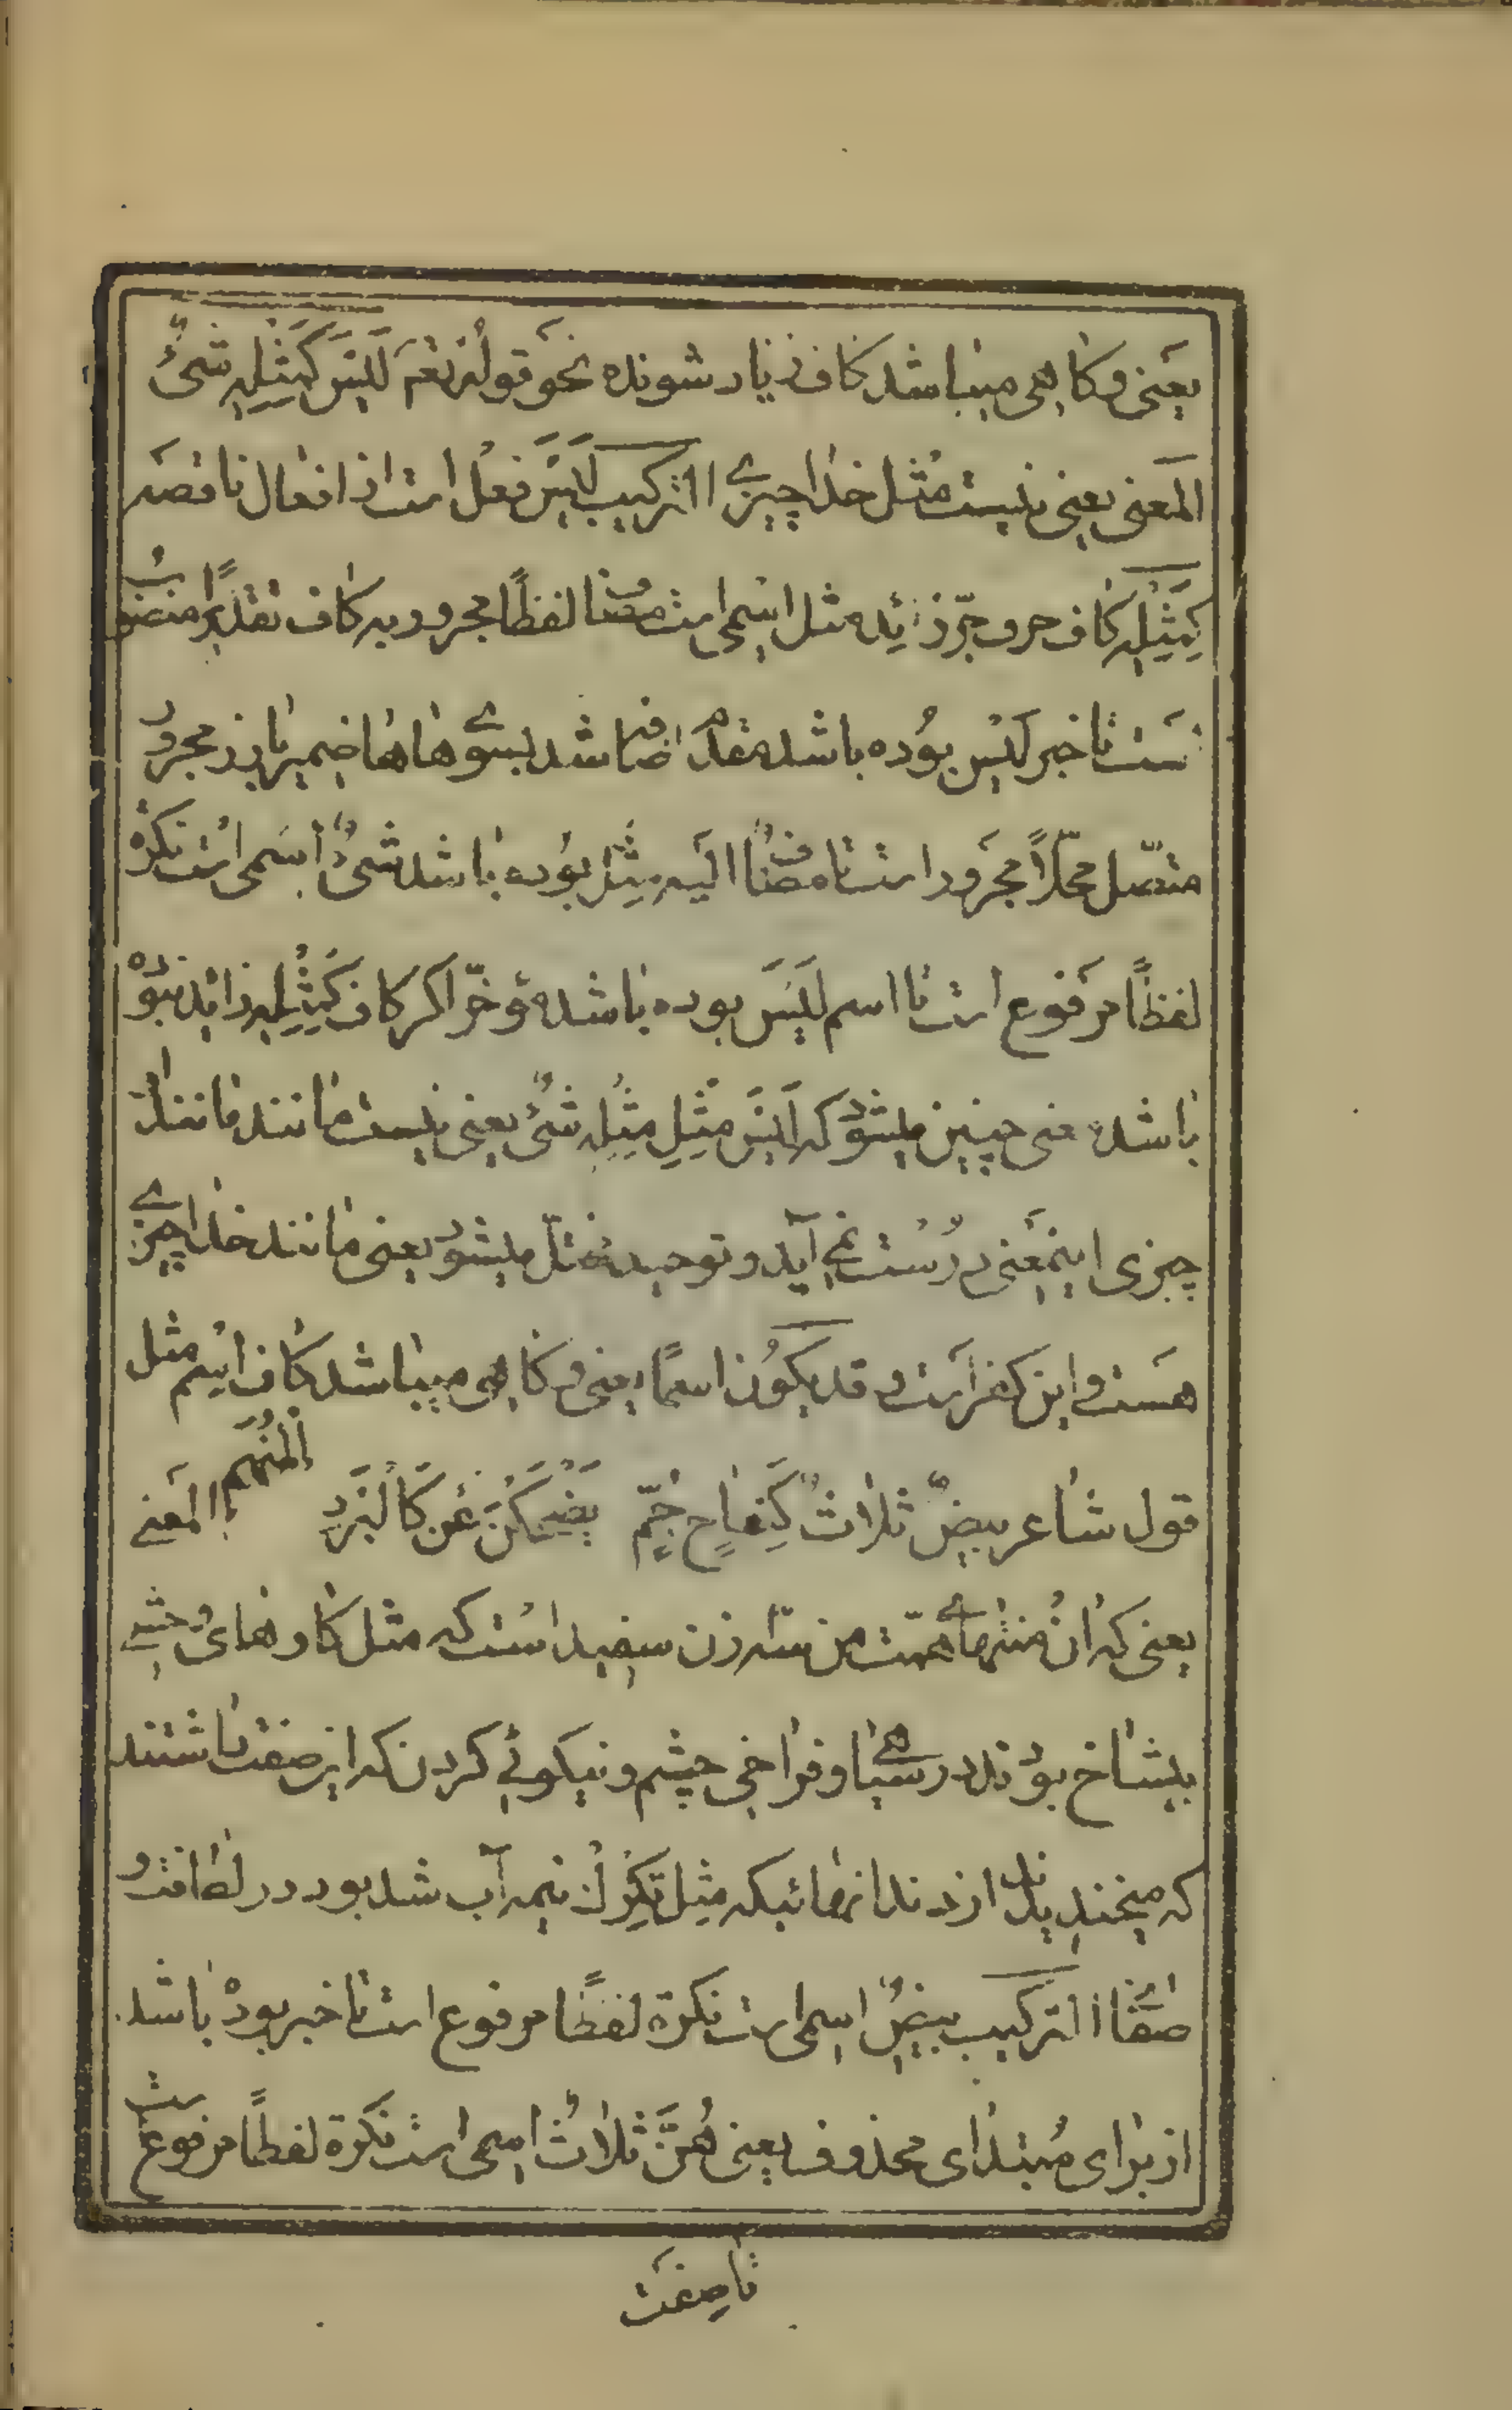 یعنی و گاهی میباشد کاف زیاد شونده نحو قوله تعم لَیْسَ کَمِثْلِهِ شَیْءٌ
المعنی یعنی نیست مثل خدا چیزی الترکیب لَیْسَ فعل است از افعال ناقصه
کَمِثْلِهِ کاف حرف جرّ زائده مثل اسمی است مضاف لفظًا مجرور به کاف تقدیرًا منصوب
است تا خبر لیس بوده باشد مقدم اضافه شد بسوی ها ها ضمیر بارز مجرور
متصّل محلّاً مجرور است تا مضاف الیه مثل بوده باشد شیءٌ اسمی است نکره
لفظًا مرفوع است تا اسم لَیْسَ بوده باشد مؤخّر اگر کاف کَمِثْلِهِ زائد نبوده
باشد معنی چنین میشود که لَیْسَ مِثْلِ مِثْلِهِ شَیْءٌ یعنی نیست مانند مانند او
چیزی اینمعنی درست نمی آید و توحید مختلّ میشود یعنی مانند خدا چیزی
هست و این کفر است و قد یکون اسمًا یعنی و گاهی میباشد کاف اسم مثل
قول شاعر بیضٌ ثلاثٌ کَنِعاجٍ جُمٍّ یَضْحَکْنَ عَنْ کَالْبَرَدِ الْمُنْهَمِّ المعنی
یعنی که ان منتهای همّت من سه زن سفید است که مثل گاوهای وحشی
بیشاخ بودند در سیاهی و فراخی چشم و نیکوئی گردن که این صفت داشتند
که میخندیدند از دندانهائیکه مثل تکرک نیمه آب شد بود در لطافت و
صفا الترکیب بیضٌ اسمی است نکرة لفظًا مرفوع است تا خبر بوده باشد
از برای مبتدای محذوف یعنی هُنَّ ثلاثٌ اسمی است نکرة لفظًا مرفوع است
تا صفت